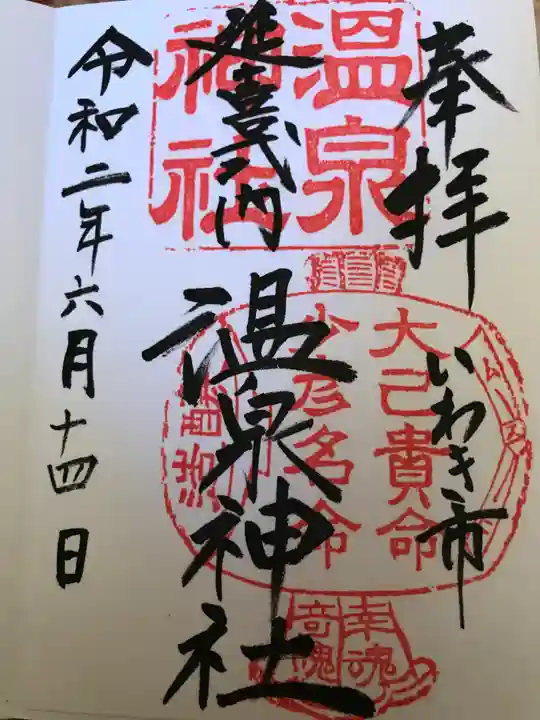 奉拝
いわき市
延喜式内
温泉神社
令和二年六月十四日
温泉
神社
大己貴命
少彦名命
幸魂
奇魂